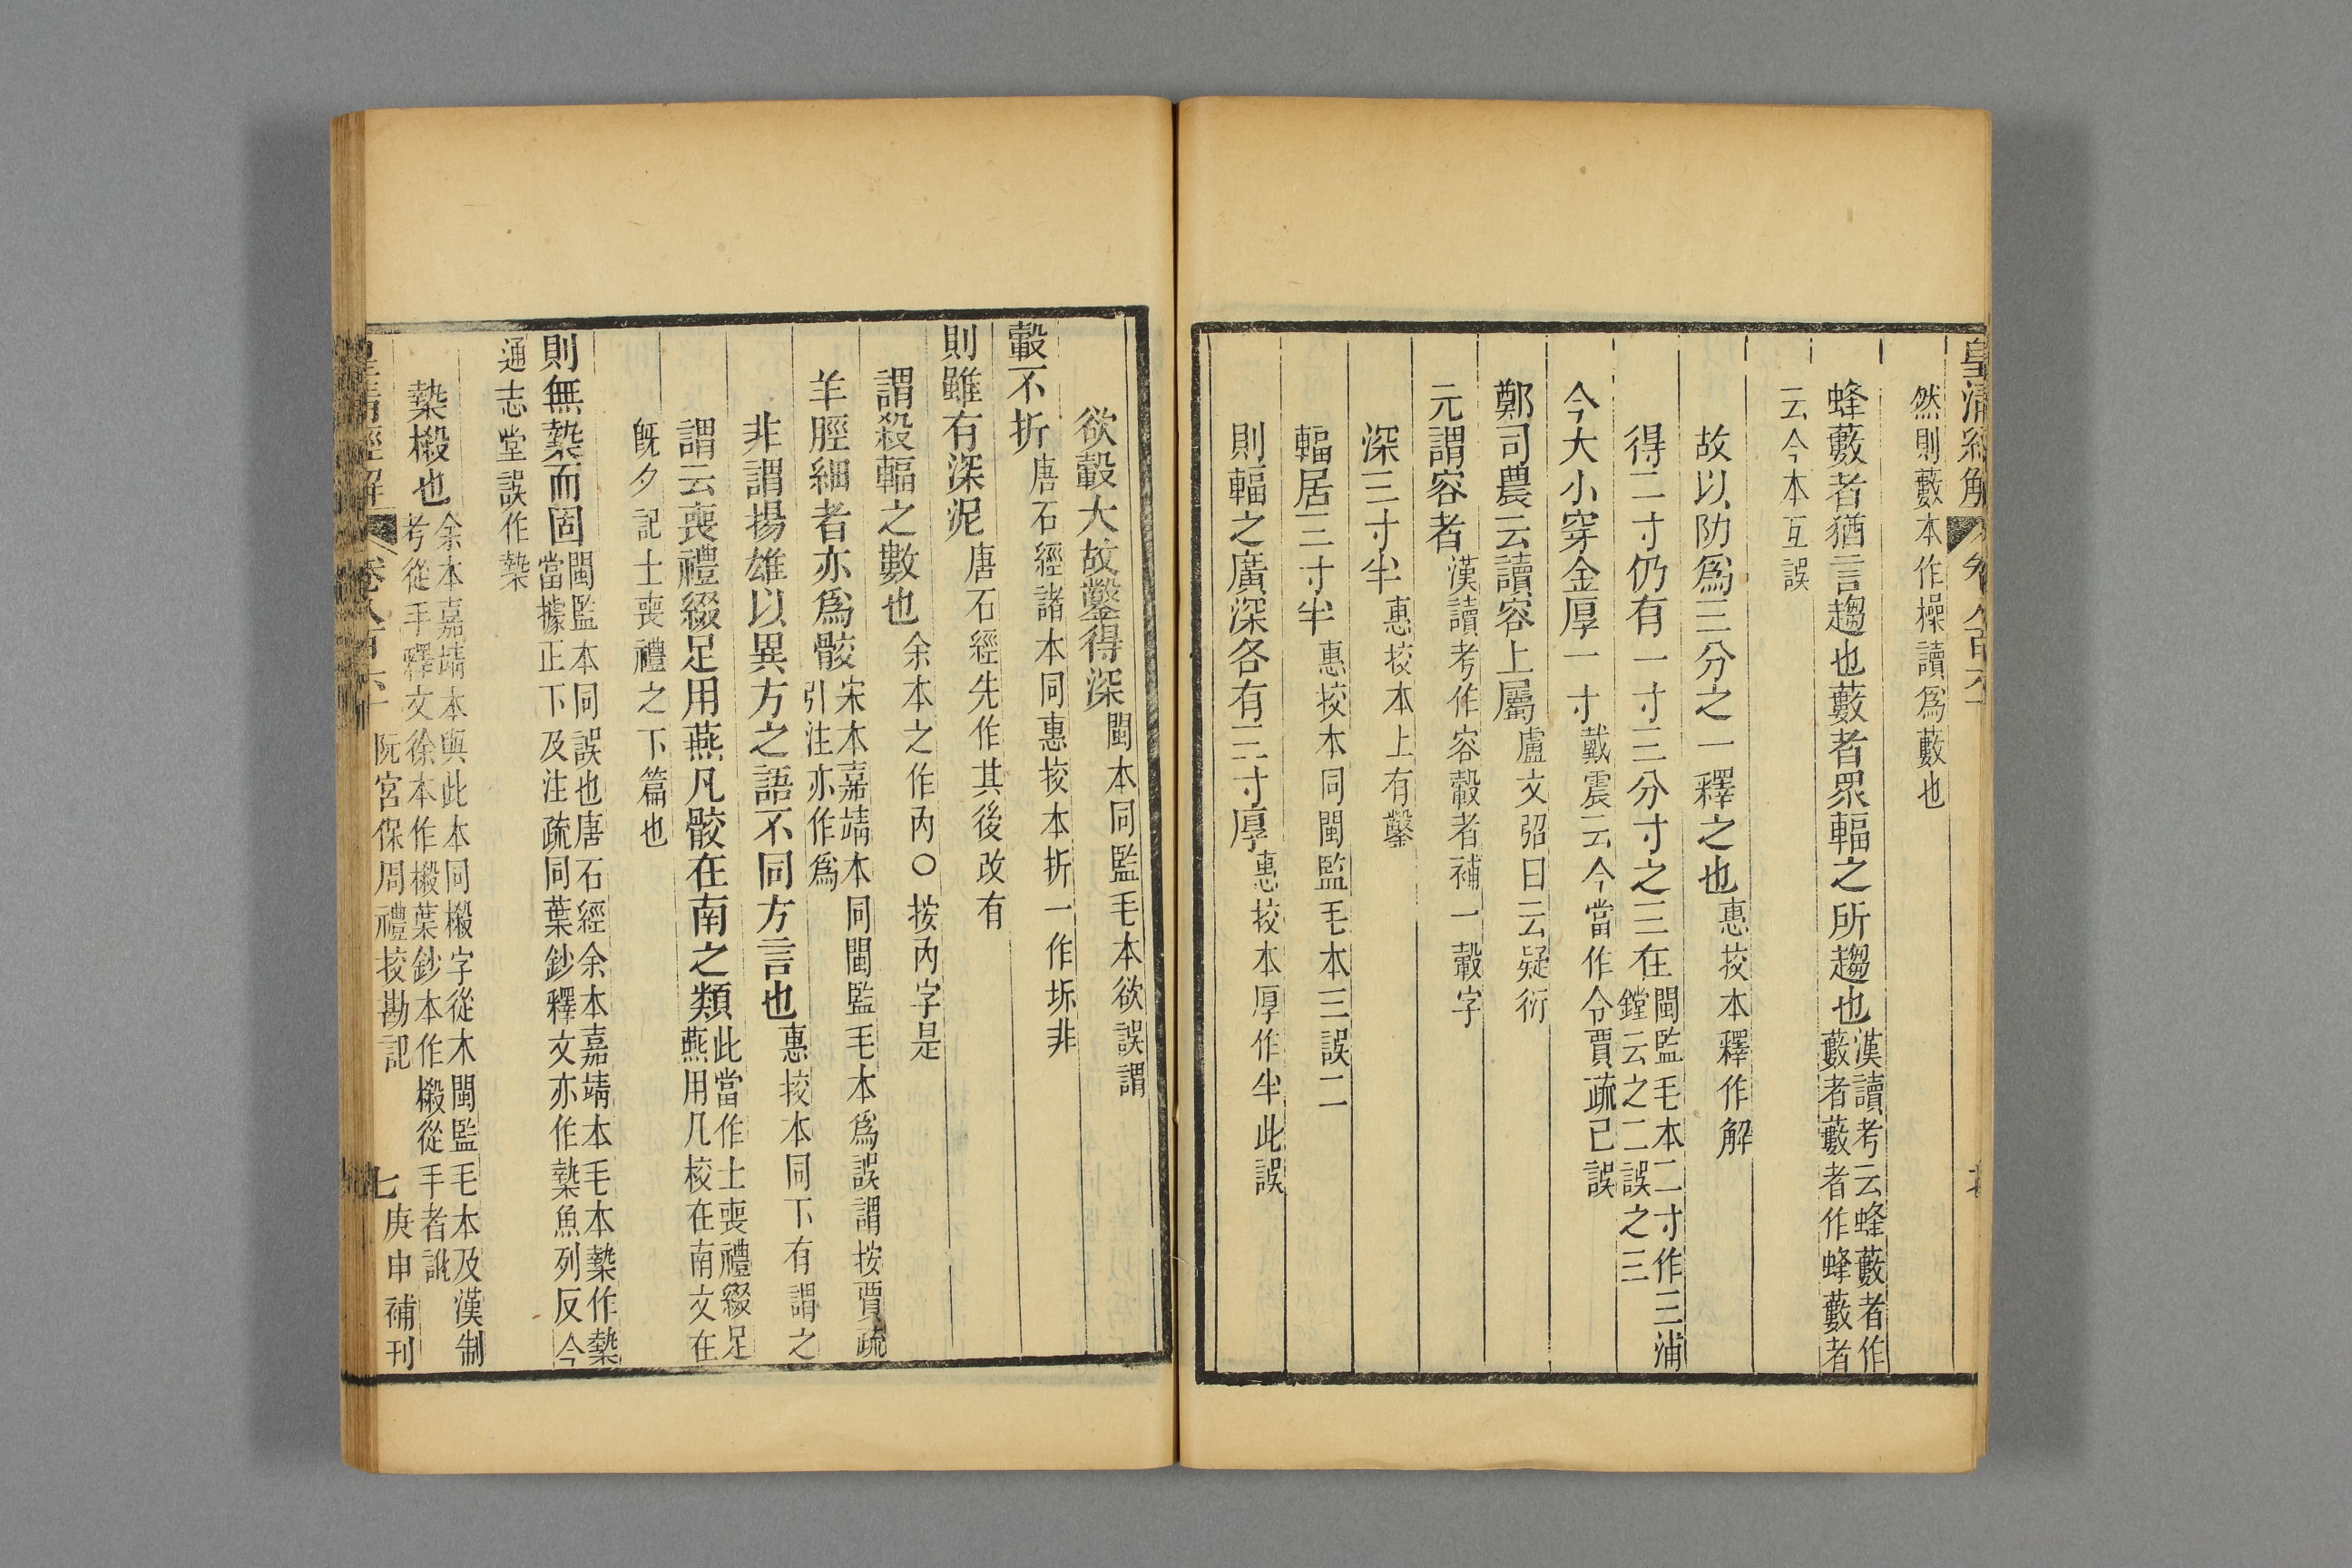 皇清經解
然則藪本作橾讀爲藪也
蜂藪者猶言趨也藪者眾輻之所趨也漢讀考云蜂藪者作
藪者藪者作蜂藪者
云今本互誤
故以防爲三分之一釋之也惠挍本釋作解
得二寸仍有一寸三分寸之三在閩監毛本二寸作三浦
鏜云之二誤之三
今大小穿金厚一寸戴震云今當作令賈疏已誤
鄭司農云讀容上屬盧文弨曰云疑衍
元謂容者漢讀考作容轂者補一轂字
深三寸半惠挍本上有鑿
輻居三寸半惠挍本同閩監毛本三誤二
則輻之廣深各有三寸厚惠挍本厚作半此誤
欲轂大故鑿得深閩本同監毛本欲誤謂
轂不折唐石經諸本同惠挍本折一作坼非
則雖有深泥唐石經先作其後改有
謂殺輻之數也余本之作內○按內字是
羊脛細者亦爲骹宋本嘉靖本同閩監毛本爲誤謂按賈疏
引注亦作爲
非謂揚雄以異方之語不同方言也惠挍本同下有謂之
謂云喪禮綴足用燕凡骹在南之類此當作士喪禮綴足
燕用几校在南文在
旣夕記士喪禮之下篇也
則無槷而固閩監本同誤也唐石經余本嘉靖本毛本槷作槷
當據正下及注疏同葉鈔釋文亦作槷魚列反今
通志堂誤作槷
槷樧也余本嘉靖本與此本同樧字從木閩監毛本及漢制
考從手釋文徐本作樧葉鈔本作樧從手者訛
皇清經解
卷八百六十
阮宮保周禮挍勘記
七
庚申補刊